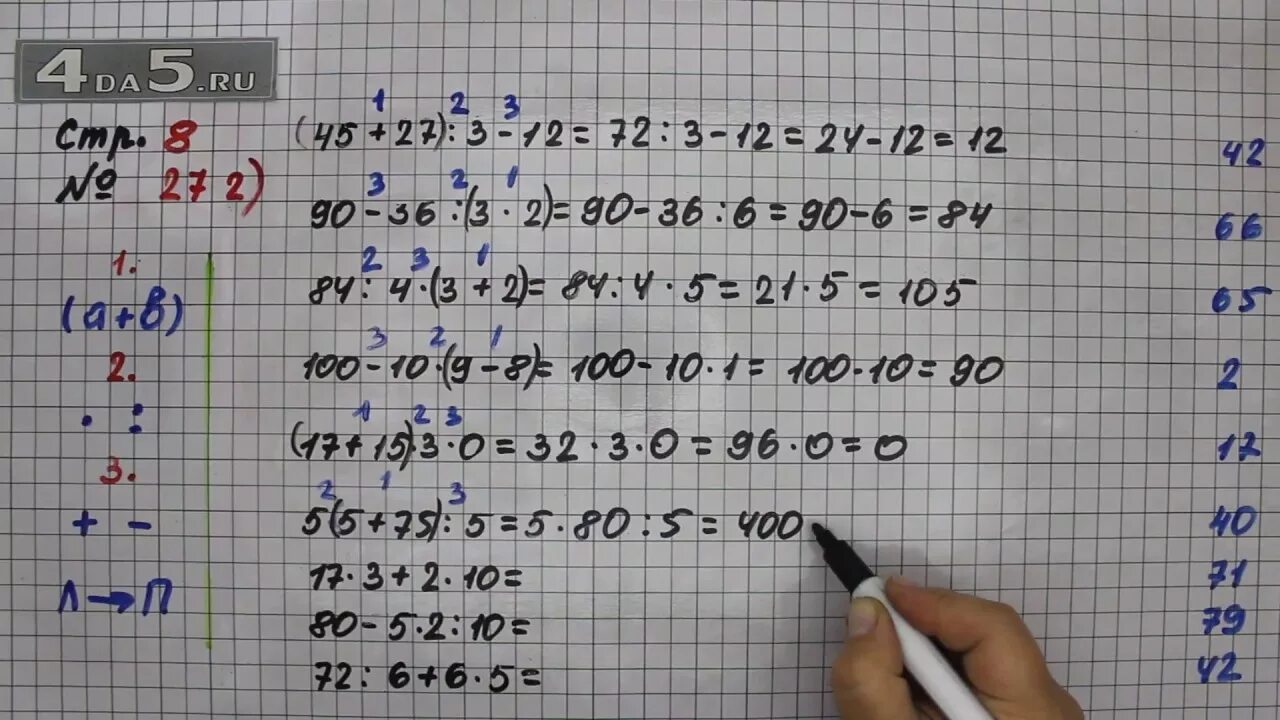 4DA5.RU
Стр. 8
№ 27 2)
1.
(а+в)
2.
· :
3.
+ -
Л→П
1 2 3
(45+27):3-12=72:3-12=24-12=12
3 2 1
90-36:(3·2)=90-36:6=90-6=84
2 3 1
84:4·(3+2)=84:4·5=21·5=105
3 2 1
100-10·(9-8)=100-10·1=100-10=90
1 2 3
(17+15)·3·0=32·3·0=96·0=0
2 1 3
5(5+75):5=5·80:5=400
17·3+2·10=
80-5·2:10=
72:6+6·5=
42
66
65
2
17
40
71
79
42